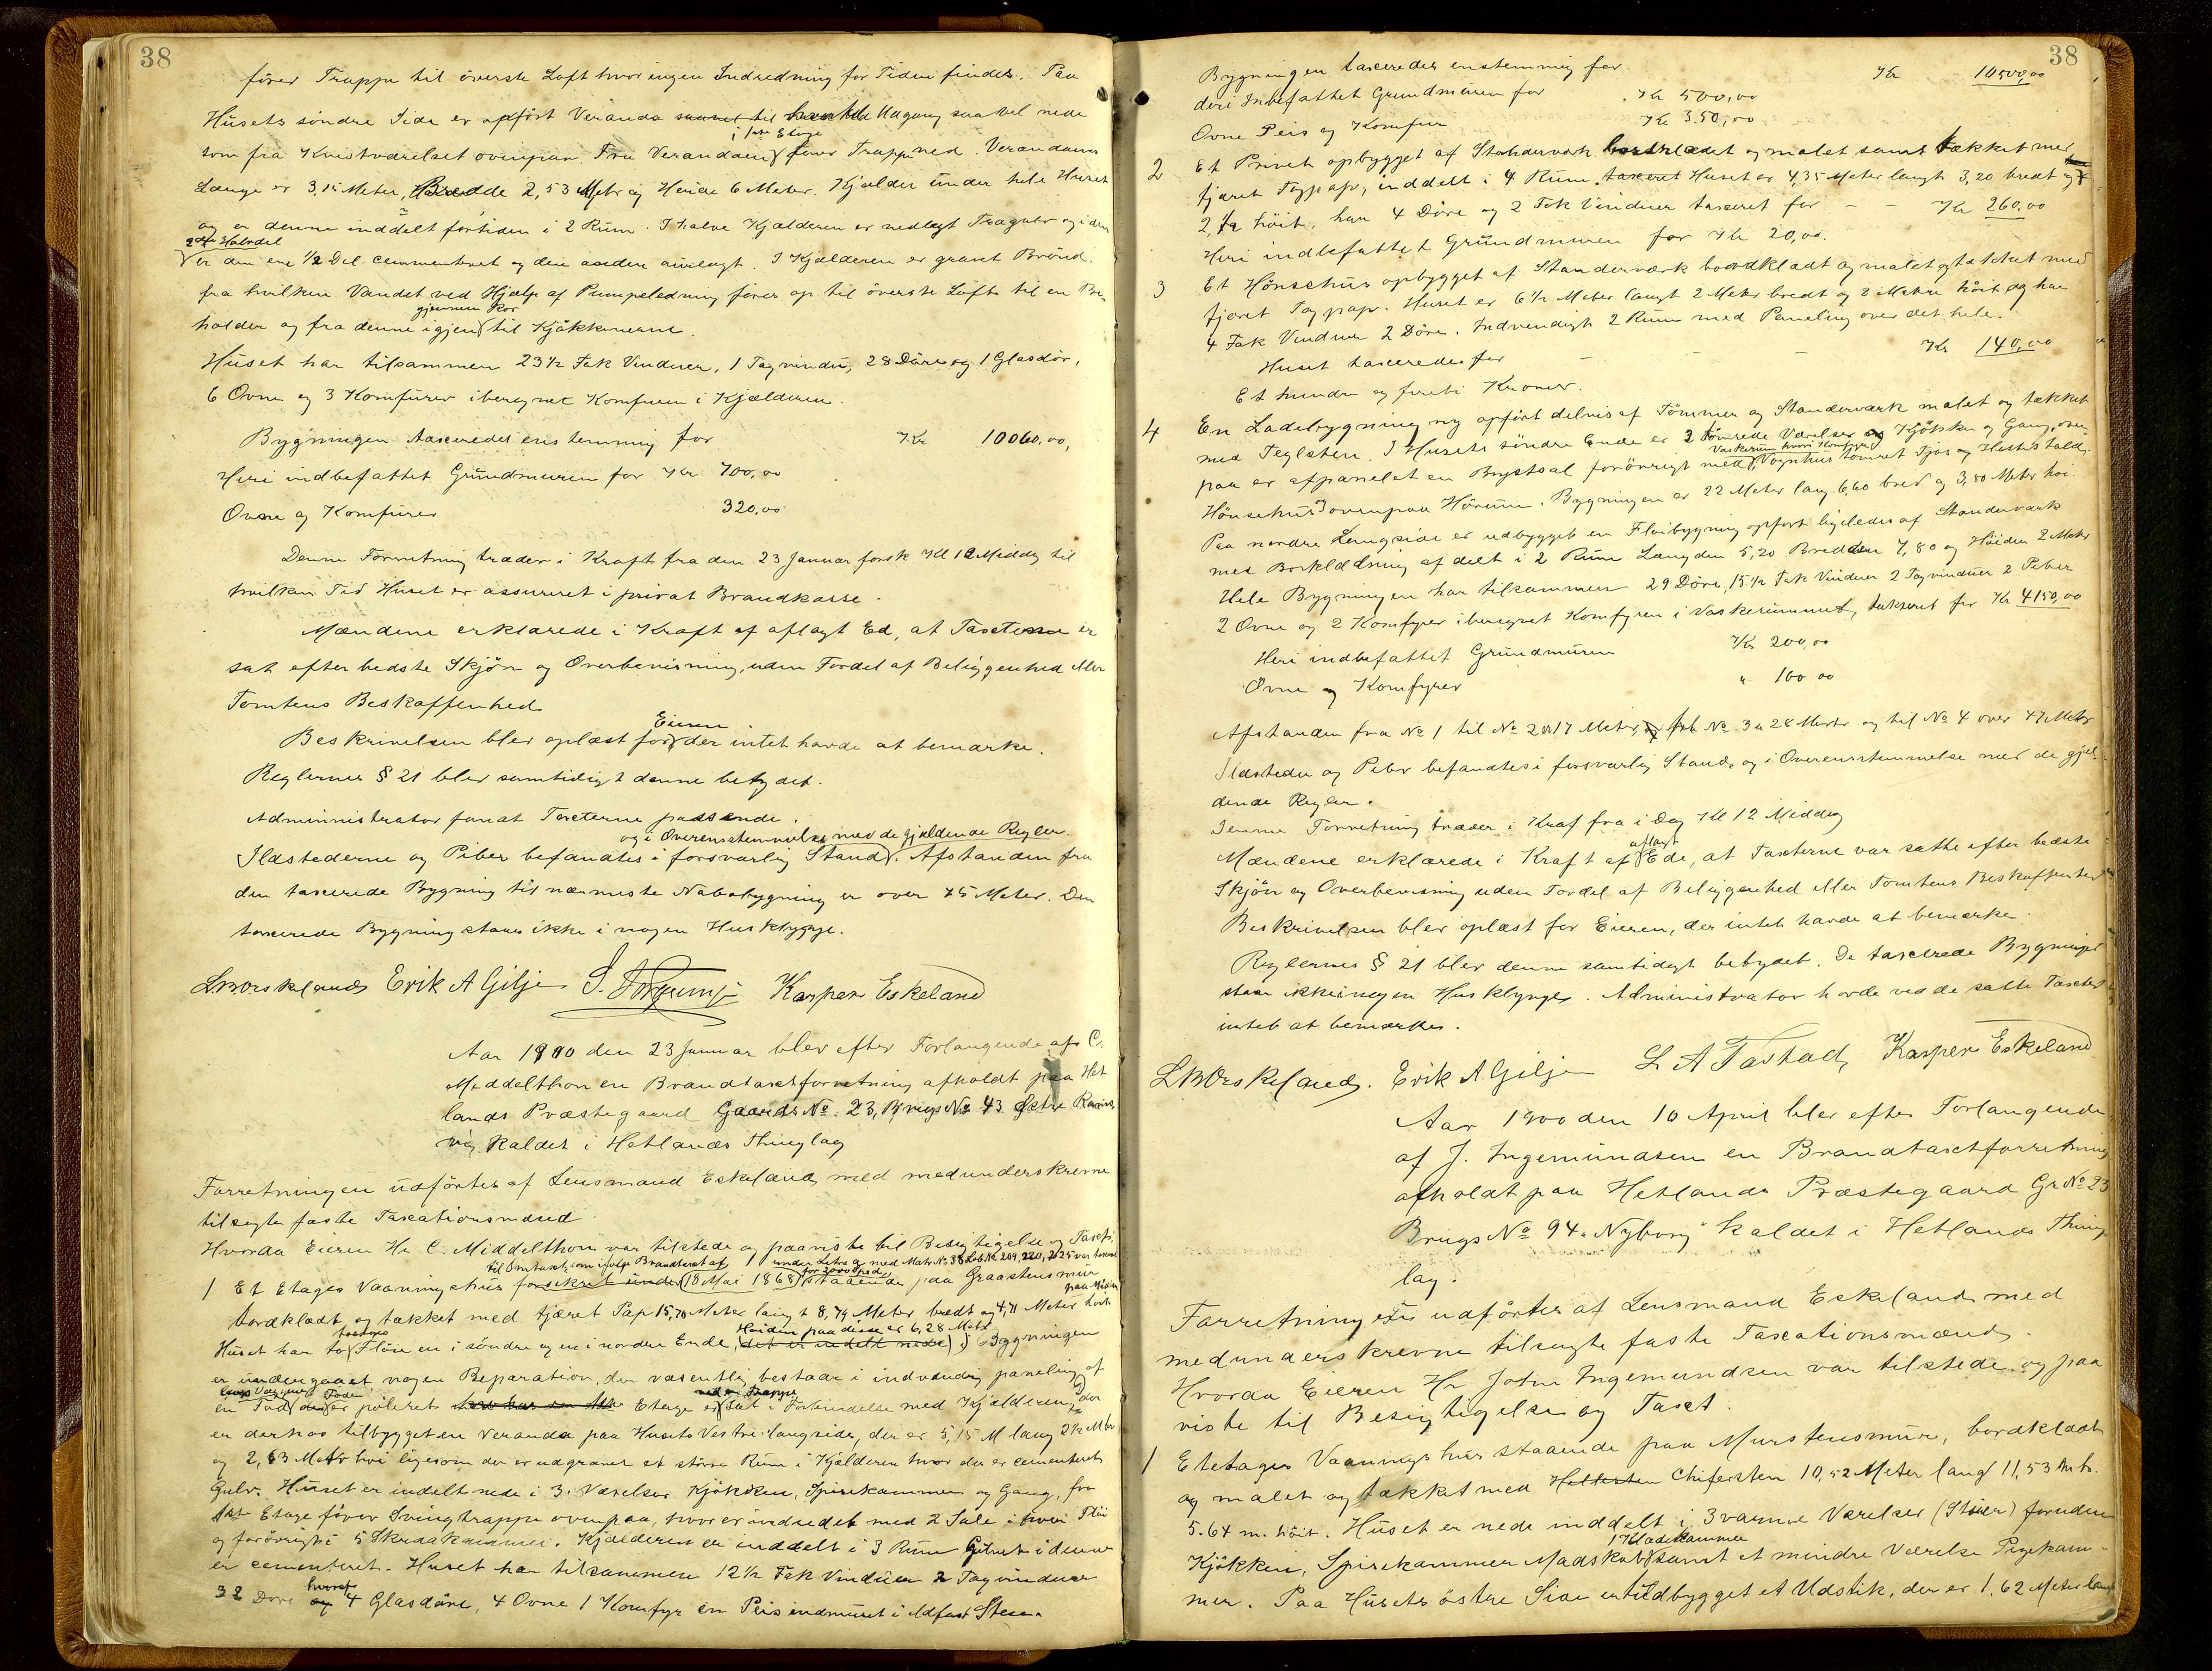 38
fører Trappe til överste Loft hvor ingen Indredning for Tiden findes. Paa
Husets söndre Side er opfört Veranda til Udgang saavel nede
i 1ste Etage
som fra Kvistværelset ovenpaa. Fra Verandaen fører Trappe ned. Verandaens
Længe er 3,15 Meter, Bredde 2,53 Meter og Høide 6 Meter. Kjælder under hele Huset
og er denne inddelt förtiden i 2 Rum. I halve Kjælderen er nedlagt Tragulv og i den
Halvdel
er den ene 1/2 Del cementeret og den anden. I Kjælderen er gravt Brönd,
fra hvilken Vandet ved Hjælp af Pumpeledning föres op til överste Loft til en Be-
gjennem Rör
holder og fra denne igjen til Kjökkenerne.
Huset har tilsammen 23 1/2 Fak Vinduer, 1 Tagvindu, 28 Döre og 1 Glasdör,
6 Ovne og 3 Komfürer iberegnet Komfuren i Kjælderen.
Bygningen taxeredes enstemmig for Kr 10060,00,
Heri indbefattet Grundmuren for Kr 700,00
Ovne og Komfürer 320,00
Denne Forretning træder i Kraft fra den 23 Januar förstk Kl 12 Middag til
hvilken Tid Huset er assureret i privat Brandkasse.
Mændene erklærede i Kraft af aflagt Ed, at Taxterne er
sat efter bedste Skjön og Overbevisning, uden Fordel af Beliggenhed eller
Tomtens Beskaffenhed
Eieren
Beskrivelsen blev oplæst for der intet havde at bemærke.
Reglernes § 21 blev samtidigt denne betydet.
Administrator fandt Taxterne passende.
og i Overensstemmelse med de gjældende Regler
Ildstederne og Piber befandtes i forsvarlig Stand. Afstanden fra
den taxerede Bygning til nærmeste Nabobygning er over 75 Meter. Den
taxerede Bygning staar ikke i nogen Husklynge.
Erik A Gilje Kasper Eskeland
Aar 1900 den 23 Januar blev efter Forlangende af C.
Middelthon en Brandtaxtforretning afholdt paa Het
lands Præstegaard Gaards No. 23, Brugs No 43 Östre Ravns
vig kaldet i Hetlands Thinglag
Forretningen udförtes af Lensmand Eskeland med medunderskrevne
tilsagte faste Taxationsmænd.
Hvorda Eieren Hr C. Middelthon var tilstede og paaviste til Besigtigelse og Taxt:
til Omtaxt, som ifølge Brandtaxt af under Litra a med Matr No 38
1 Et Etages Vaaningshus forsikret under 18 Mai 1868 staaende paa Graastensmur
for 2000 Spd
paa Midten
bordklædt og tækket med tjæret Pap 15,70 Meter langt 8,79 Meter bredt og 4,71 Meter höit
Høiden paa disse er 6,28 Meter
Huset har to Flöie en i söndre og en i nordre Ende, Bygningen
er undergaaet nogen Reparation, der væsentlig bestaar i indvendig paneling af
ved en Trappe
Etage er sat i Forbindelse med Kjælderen, der
er derhos tilbygget en Veranda paa Husets Vestre Langside, der er 5,15 M lang 2 1/2 Mtr
og 2,63 Meter höi ligesom der er udgravet et större Rum i Kjælderen hvor der er cementeret
Gulv. Huset er indelt nede i 3 Værelser Kjökken, Spisekammer og Gang, fra
1ste Etage fører Svingtrappe ovenpaa, hvor er indredet med 2 Sale i hver Flöi
og forövrigt 5 Skraakammer. Kjælderen er inddelt i 3 Rum Gulvet i denne
er cementeret. Huset har tilsammen 12 1/2 Fak Vinduer 2 Tagvinduer
hvoraf
32 Döre 4 Glasdöre, 4 Ovne 1 Komfyr en Peis indmuret i
38
Bygningen taxeredes enstemmig for Kr 10500,00
deri Inbefattet Grundmuren for Kr 500,00
Ovne Peis og Komfur Kr 350,00
2 Et Privet opbygget af Standerverk bordklædet og malet samt tækket med
tjæret Tagpap, inddelt i 4 Rum. Huset er 4,35 Meter langt 3,20 bredt og
2,12 höit, har 4 Döre og 2 Fak Vinduer taxeret for - - Kr 260,00
Heri indbefattet Grundmuren for Kr 20,00.
3 Et Hönsehus opbygget af Standerværk bordklædt og malet og tækket med
tjæret Tagpap. Huset er 6 1/2 Meter langt 2 Meter bredt og 2 Meter höit og har
4 Fak Vinduer 2 Döre. Indvendigt 2 Rum med Paneling over det hele.
Huset taxeredes for - - - Kr 140,00
Et hundre og förti Kroner.
4 En Ladebygning ny opfört delvis af Tömmer og Standerværk malet og tækket
med Teglsten. I Husets söndre Ende er 2 Tömrede Værelser Kjökken og Gang, oven
Vaskerum hvori Komfyr
paa er afpanelet en Brystsal forövrigt med Vognhus tömret Fjös og Hestestald,
Hönsehus ovenpaa Hörum. Bygningen er 22 Meter lang 6,60 bred og 3,80 Meter höi.
Paa nordre Langside er udbygget en Flöibygning opfört ligeledes af Standerværk
med Bordklædning afdelt i 2 Rum Længden 5,20 Bredden 7,80 og Höiden 2 Meter
Hele Bygningen har tilsammen 29 Döre, 15 1/2 Fak Vinduer 2 Tagvinduer 2 Peber
2 Ovne og 2 Komfyrer iberegnet Komfyren i Vaskerummet, takseret for Kr 4150,00
Heri indbefattet Grundmuren Kr 200,00
Ovne og Komfyrer " 160 00
Afstanden fra No 1 til No 2 er 17 Meter, til No 3 er 28 Meter og til No 4 over 47 Meter
Ildsteder og Peber befandtes i forsvarlig Stand og i Overensstemmelse med de gjæl-
dende Regler.
Denne Forretning træder i Kraf fra i Dag Kl 12 Middag
aflagt
Mændene erklærede i Kraft af Ede, at Taxterne var satte efter bedste
Skjön og Overbevisning uden Fordel af Beliggenhed eller Tomtens Beskaffenhed
Beskrivelsen blev oplæst for Eieren, der intet havde at bemærke.
Reglernes § 21 blev denne samtidigt betydet. De taxerede Bygninger
staar ikke i nogen Husklynge. Administrator havde ved de satte Taxter
intet at bemærke.
Erik A Gilje L A Tastad, Kasper Eskeland
Aar 1900 den 10 April blev efter Forlangende
af J. Ingemundsen en Brandtaxtforretning
afholdt paa Hetlands Præstegaard Gr No 23
Brugs No 94 "Nyborg" kaldet i Hetlands Thing
lag.
Forretningen udförtes af Lensmand Eskeland med
medunderskrevne tilsagte faste Taxationsmænd.
Hvorda Eieren Hr John Ingemundsen var tilstede og paa
viste til Besigtigelse og Taxt.
1 Et etages Vaaningshus staaende paa Murstensmur, bordklædt
og malet og tækket med Hellesten Chifersten 10,52 Meter lang 11,53 m br.
5.64 m. höit. Huset er nede inddelt i 3 varme Værelser (Stuer) foruden
1 Klædekammer
Kjökken, Spisekammer Madskab samt et mindre Værelse Pigekam-
mer. Paa Husets östre Side er Udbygget et Udstik, der er 1,62 Meter langt